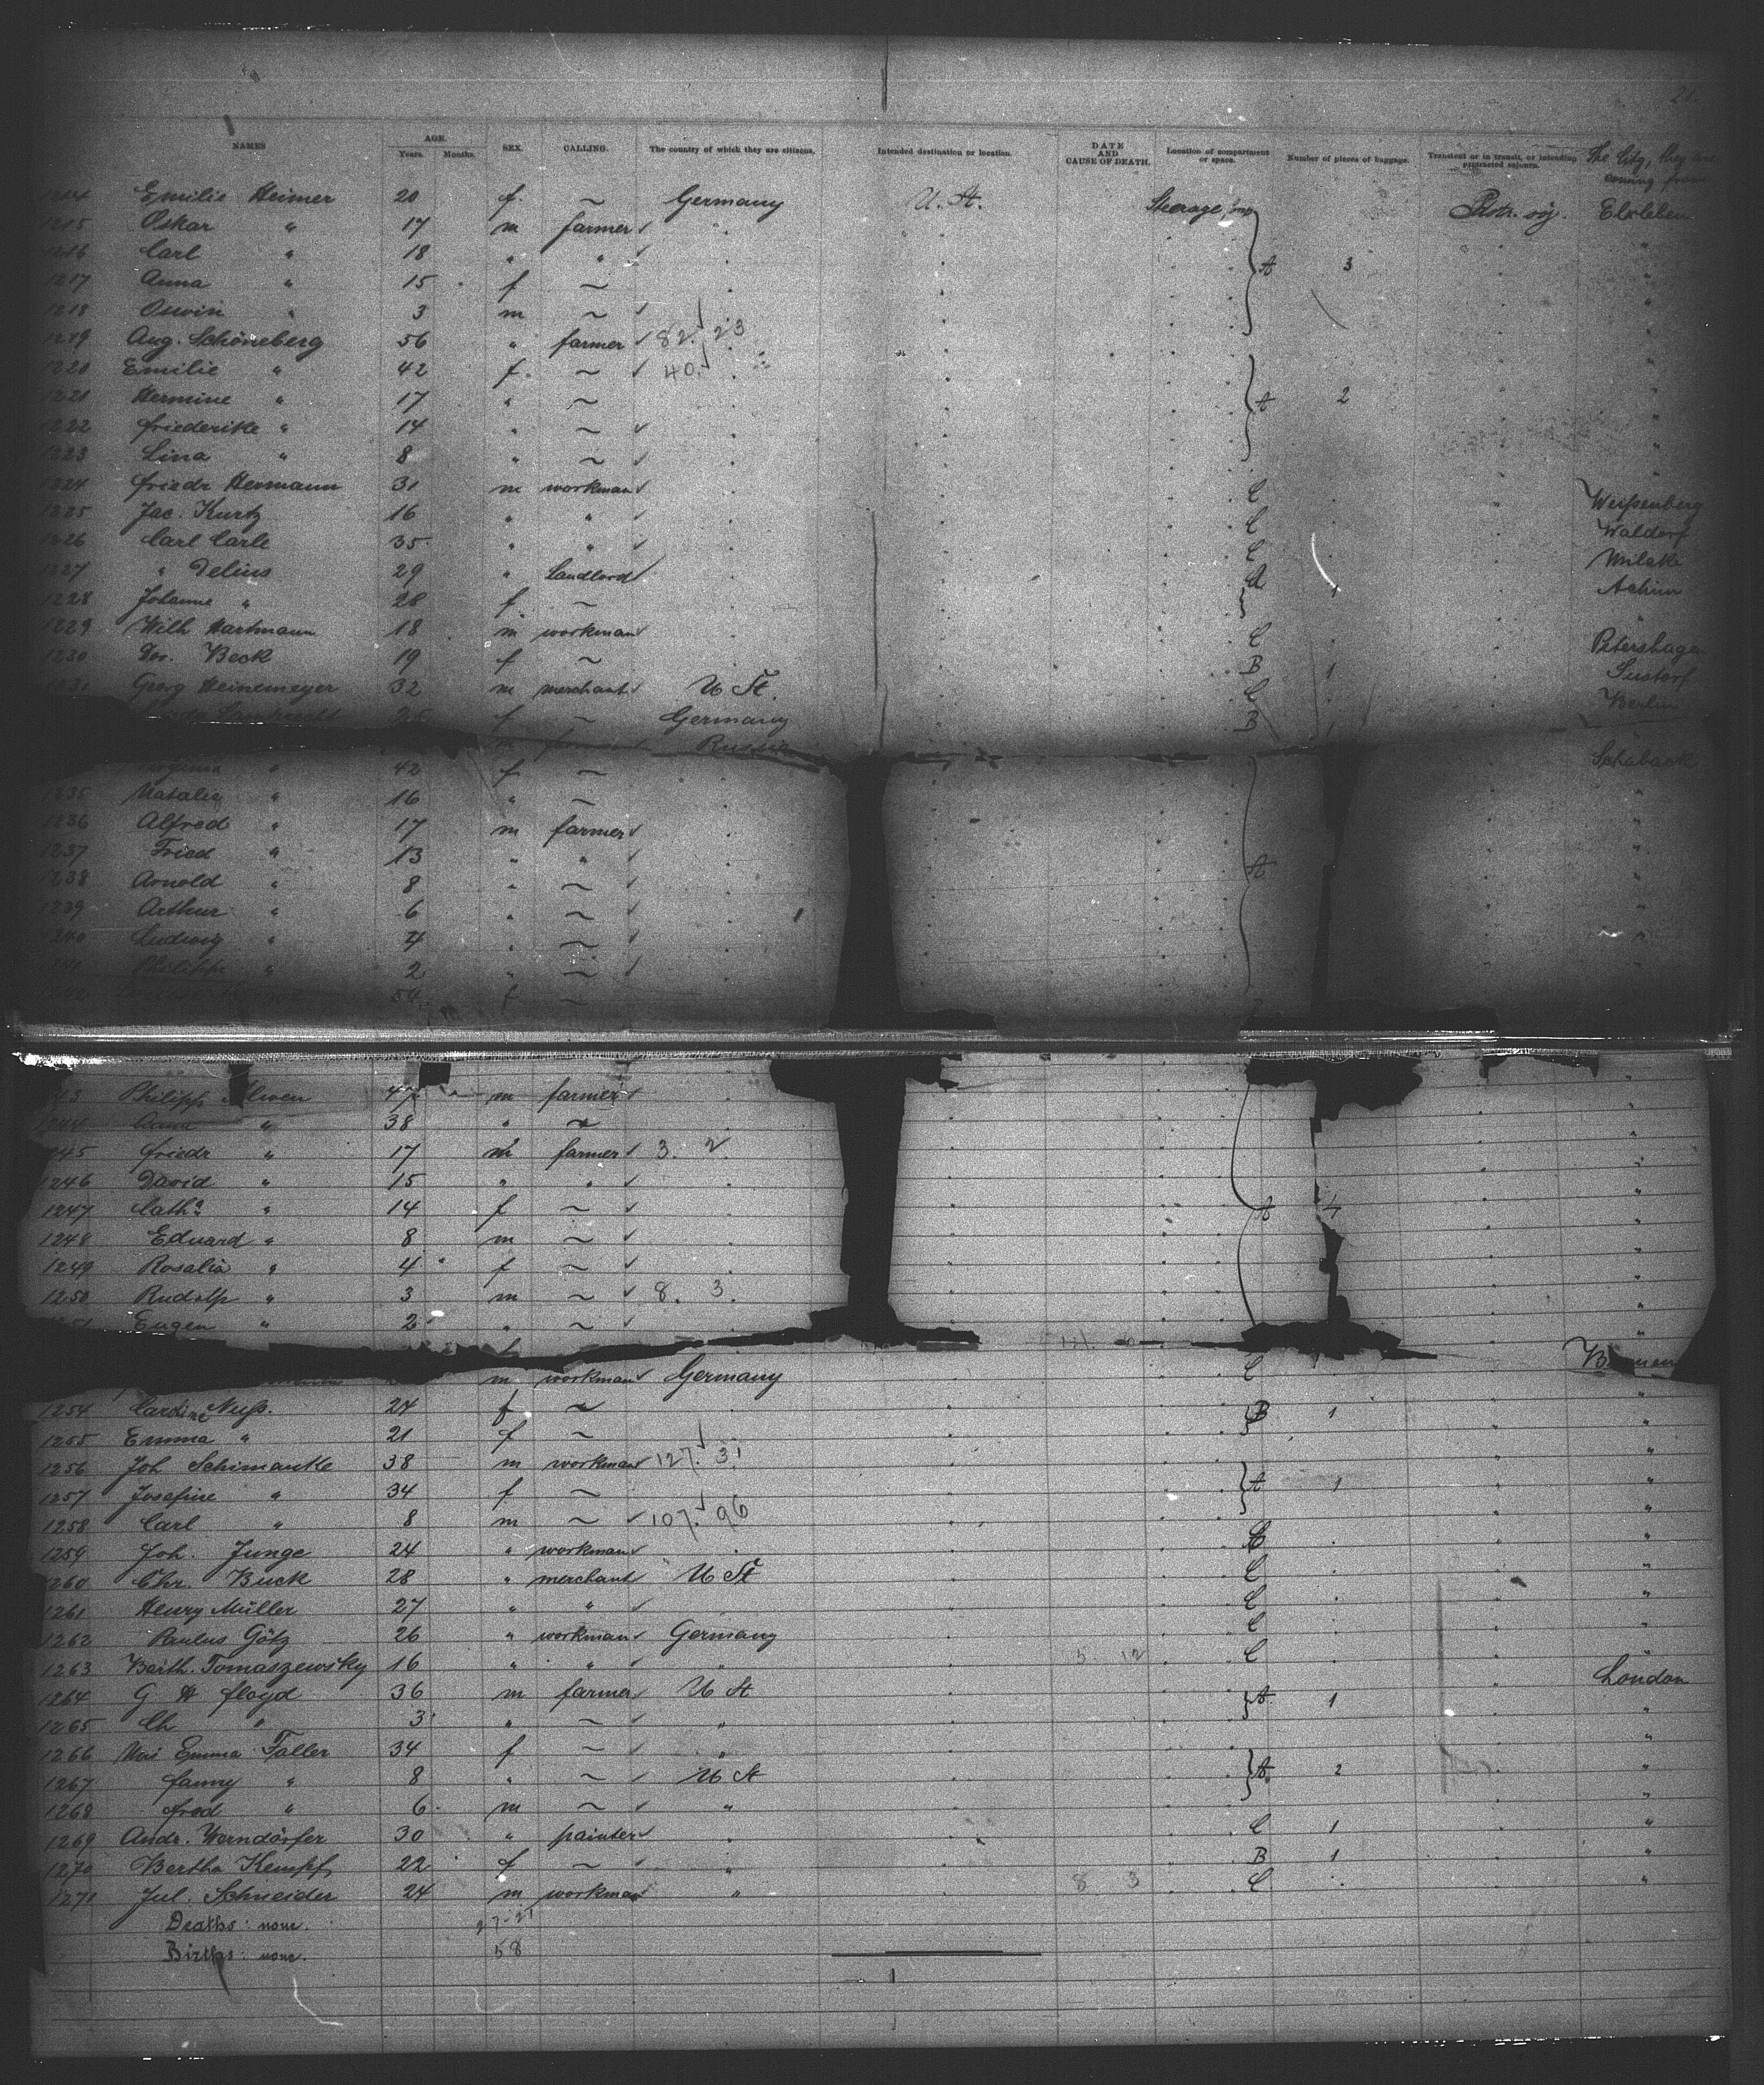 21.
NAMES AGE. Years. Months. SEX. CALLING. The country of which they are citizens. Intended destination or location. DATE AND CAUSE OF DEATH. Location of compartment or space. Number of pieces of baggage. Transient or in transit, or intending protracted sojourn. The City, they are coming from
1214 Emilie Heimer 20 f. ~ Germany U. St. Steerage Prtr. soj.
1215 Oskar " 17 m farmer "
1216 Carl " 18 " " " A 3 "
1217 Anna " 15 f ~ "
1218 Oswin " 3 m ~
1219 Aug. Schöneberg 56 " farmer 82. 23 "
1220 Emilie " 42 f. ~ 40. "
1221 Hermine " 17 " ~ A 2 "
1222 Friederike " 14 " ~ "
1223 Lina " 8 " ~ "
1224 Friedr Hermann 31 m workman C Weißenberg
1225 Jac. Kurtz 16 " " C Waldorf
1226 Carl Carle 35 " " C
1227 " Delius 29 " Landlord A 1 Achim
1228 Johanne " 28 f. ~
1229 Wilh Hartmann 18 m workman C Petershagen
1230 Dor. Beck 19 f ~ B 1
1231 Georg Heinemeyer 32 m merchant U St. C Berlin
25 f ~ Germany B 1
m Russia Schaback
" 42 f ~
1235 Natalia " 16 " ~ "
1236 Alfred " 17 m farmer "
1237 Fried " 13 " " "
1238 Arnold " 8 " ~ A "
1239 Arthur " 6 " ~ "
1240 Ludwig " 4 " ~ "
1241 Philipp " 2 " ~
54 f ~
43 Philipp 47 m farmer "
1244 " 38 " ~ "
1245 Friedr " 17 m farmer 3. 2. "
1246 David " 15 " " "
1247 Cath. " 14 f ~ A 4 "
1248 Eduard " 8 m ~ "
1249 Rosalia " 4 f ~ "
1250 Rudolp " 3 m ~ 8. 3. "
1251 Eugen " 2 " ~ "
m workman Germany C Bremen
1254 Caroline Nuß. 24 f ~ B 1 "
1255 Emma " 21 f ~ "
1256 Joh Schimanke 38 m workman 127. 31 "
1257 Josefine " 34 f ~ A 1 "
1258 Carl " 8 m ~ 107. 96 "
1259 Joh. Junge 24 " workman C "
1260 Chr. Buck 28 " merchant U St C "
1261 Henry Müller 27 " " C "
1262 Paulus Götz 26 " workman Germany C "
1263 Barth. Tomaszewsky 16 " " " 5 12 C
1264 G H Floyd 36 m farmer U St A 1 London
1265 Ch " 3 " ~ " "
1266 Mrs Emma Faller 34 f ~ " "
1267 Fanny " 8 " ~ U St A. 2 "
1268 Fred " 6 m ~ " "
1269 Andr. Werndörfer 30 " painter " C 1 "
1270 Bertha Kempf 22 f ~ " B 1 "
1271 Jul. Schneider 24 m workman " 8 3 C "
Deaths: none. 27-21
Births: none. 58